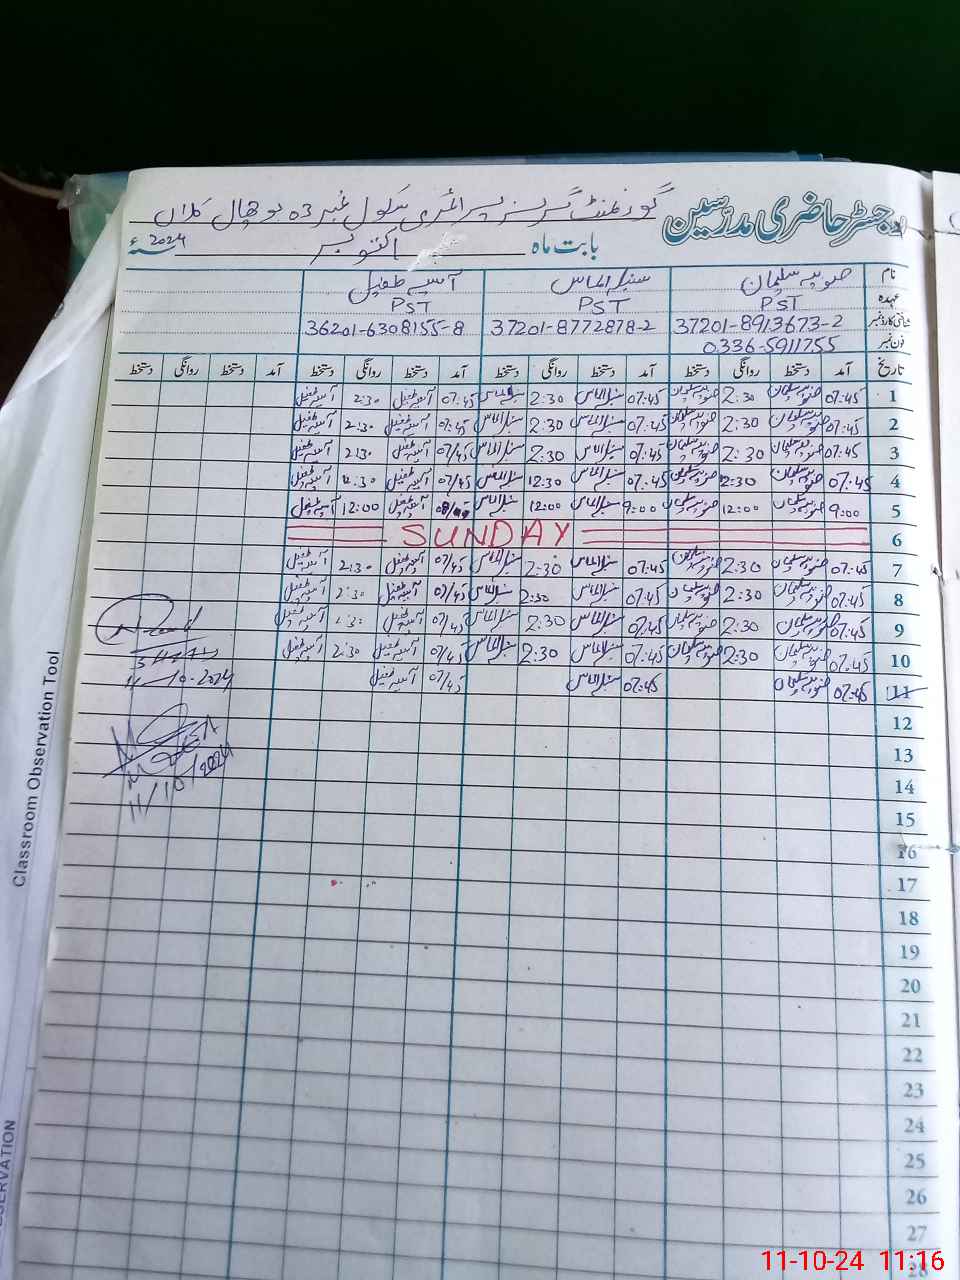 رجسٹر حاضری مدرسین گورنمنٹ گرلز پرائمری سکول نمبر 03 بوچھال کلاں
بابت ماہ اکتوبر 2024ء
نام صوبیہ سلیمان سنبل الماس آسیہ طفیل
عہدہ PST PST PST
شناختی کارڈ نمبر 37201-8913673-2 37201-8772878-2 36201-6308155-8
فون نمبر 0336-5911755
تاریخ آمد دستخط روانگی دستخط آمد دستخط روانگی دستخط آمد دستخط روانگی دستخط آمد دستخط روانگی دستخط
1 07:45 صوبیہ سلیمان 2:30 صوبیہ سلیمان 07:45 سنبل الماس 2:30 سنبل الماس 07:45 آسیہ طفیل 2:30 آسیہ طفیل
2 07:45 صوبیہ سلیمان 2:30 صوبیہ سلیمان 07:45 سنبل الماس 2:30 سنبل الماس 07:45 آسیہ طفیل 2:30 آسیہ طفیل
3 07:45 صوبیہ سلیمان 2:30 صوبیہ سلیمان 07:45 سنبل الماس 2:30 سنبل الماس 07/45 آسیہ طفیل 2:30 آسیہ طفیل
4 07:45 صوبیہ سلیمان 2:30 صوبیہ سلیمان 07:45 سنبل الماس 12:30 سنبل الماس 07/45 آسیہ طفیل 12:30 آسیہ طفیل
5 9:00 صوبیہ سلیمان 12:00 صوبیہ سلیمان 9:00 سنبل الماس 12:00 سنبل الماس آسیہ طفیل 12:00 آسیہ طفیل
6 SUNDAY
7 07:45 صوبیہ سلیمان 2:30 صوبیہ سلیمان 07:45 سنبل الماس 2:30 سنبل الماس 07/45 آسیہ طفیل 2:30 آسیہ طفیل
8 07:45 صوبیہ سلیمان 2:30 صوبیہ سلیمان 07:45 سنبل الماس 2:30 سنبل الماس 07/45 آسیہ طفیل 2:30 آسیہ طفیل
9 07:45 صوبیہ سلیمان 2:30 صوبیہ سلیمان 07:45 سنبل الماس 2:30 سنبل الماس 07/45 آسیہ طفیل 2:30 آسیہ طفیل
10 07:45 صوبیہ سلیمان 2:30 صوبیہ سلیمان 07:45 سنبل الماس 2:30 سنبل الماس 07/45 آسیہ طفیل 2:30 آسیہ طفیل
11 07:45 صوبیہ سلیمان 07:45 سنبل الماس 07/45 آسیہ طفیل
11-10-2024
12
13
11/10/2024
14
15
16
17
18
19
20
21
22
23
24
25
26
27
28
Classroom Observation Tool
11-10-24 11:16